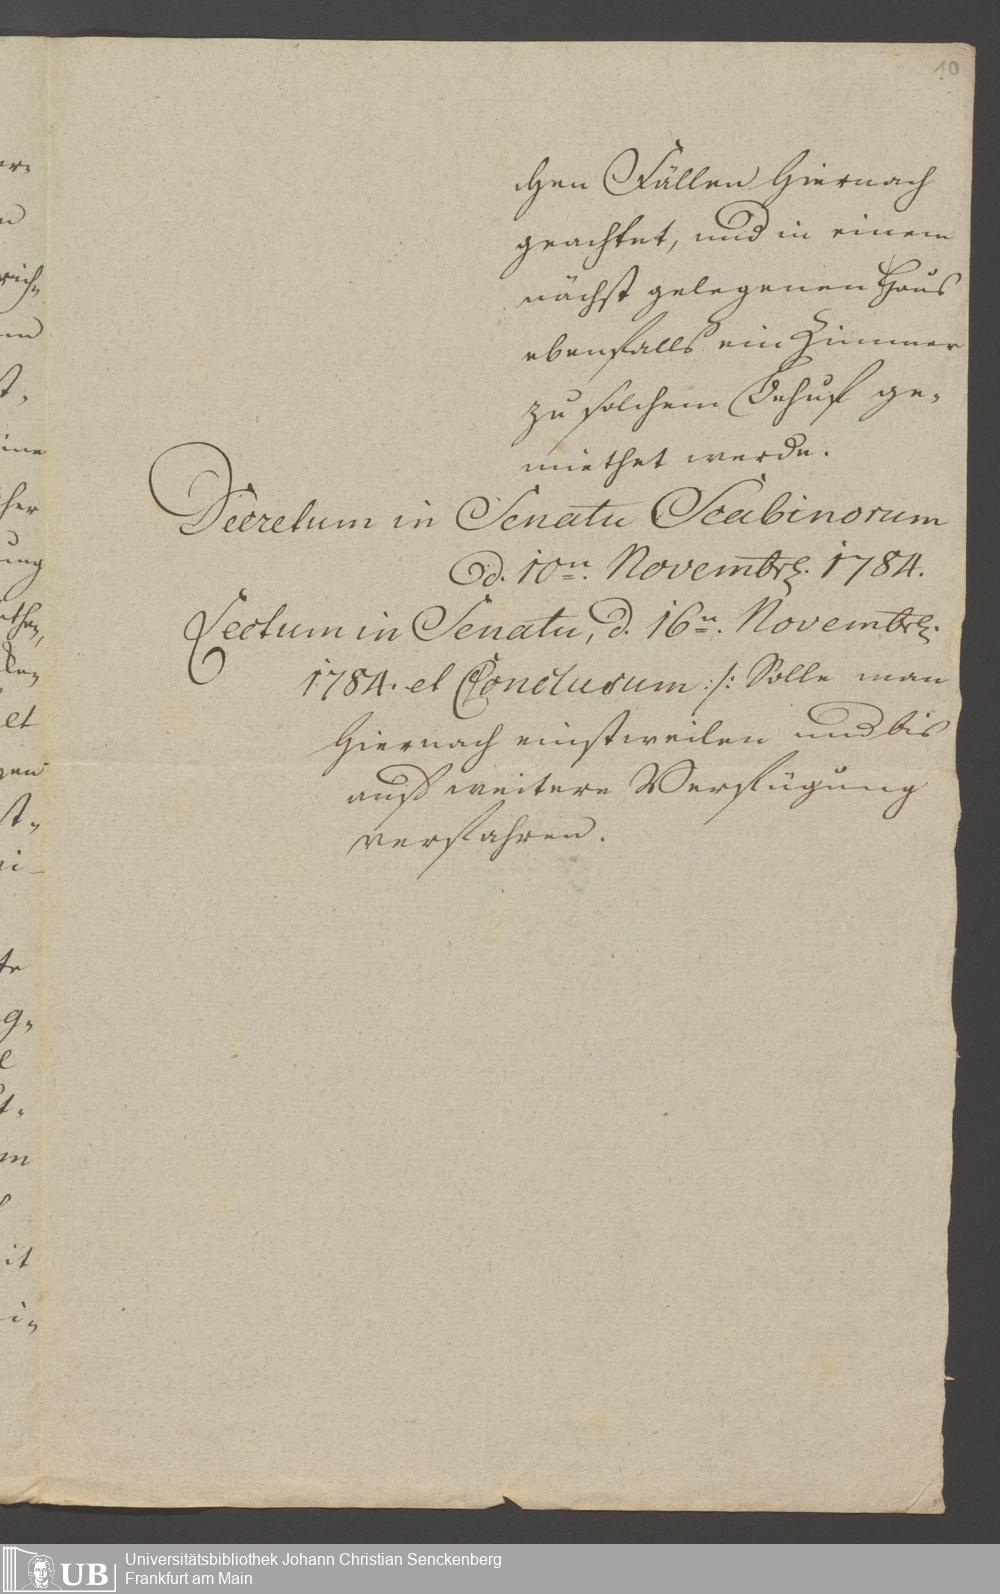 10
chen Fällen hiernach
geachtet, und in einem
nächst gelegenen Haus
ebenfalls ein Zimmer
zu solchem Behuf ge-
miethet werde.
Decretum in Senatu Scabinorum
d. 10n. Novembrs. 1784.
Lectum in Senatu, d. 16n. Novembrs.
1784. et Conclusum :/: Solle man
hiernach einstweilen und bis
auf weitere Verfügung
verfahren.
UB
Universitätsbibliothek Johann Christian Senckenberg
Frankfurt am Main